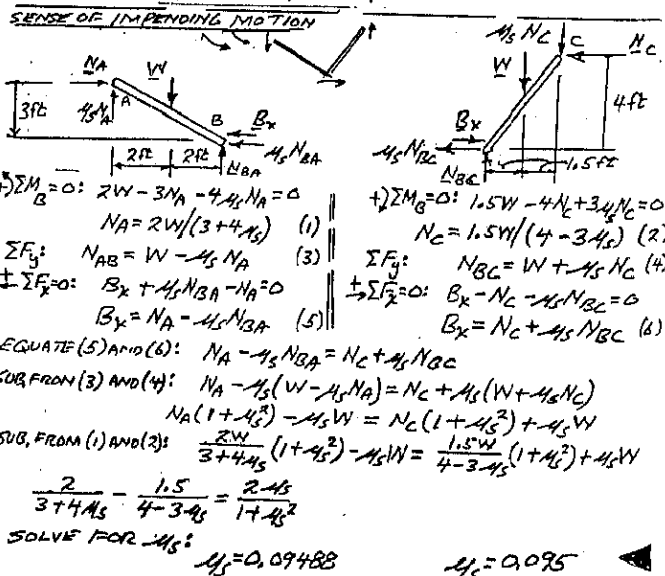 SENSE OF IMPENDING MOTION
N_A
W
3ft
μ_s N_A
A
B
B_x
μ_s N_BA
2ft
2ft
N_BA
μ_s N_C
C
N_C
W
4ft
B_x
μ_s N_BC
N_BC
1.5ft
+) ΣM_B=0: 2W - 3N_A - 4μ_s N_A = 0
N_A = 2W/(3+4μ_s) (1)
ΣF_y: N_AB = W - μ_s N_A (3)
+ ΣF_x=0: B_x + μ_s N_BA - N_A = 0
B_x = N_A - μ_s N_BA (5)
+) ΣM_B=0: 1.5W - 4N_C + 3μ_s N_C = 0
N_C = 1.5W/(4-3μ_s) (2)
ΣF_y: N_BC = W + μ_s N_C (4)
+→ ΣF_x=0: B_x - N_C - μ_s N_BC = 0
B_x = N_C + μ_s N_BC (6)
EQUATE (5) AND (6): N_A - μ_s N_BA = N_C + μ_s N_BC
SUB, FROM (3) AND (4): N_A - μ_s(W - μ_s N_A) = N_C + μ_s(W + μ_s N_C)
N_A(1+μ_s²) - μ_s W = N_C(1+μ_s²) + μ_s W
SUB, FROM (1) AND (2): 2W/(3+4μ_s) (1+μ_s²) - μ_s W = 1.5W/(4-3μ_s) (1+μ_s²) + μ_s W
2/(3+4μ_s) - 1.5/(4-3μ_s) = 2μ_s/(1+μ_s²)
SOLVE FOR μ_s:
μ_s = 0.09488 μ_s = 0.095